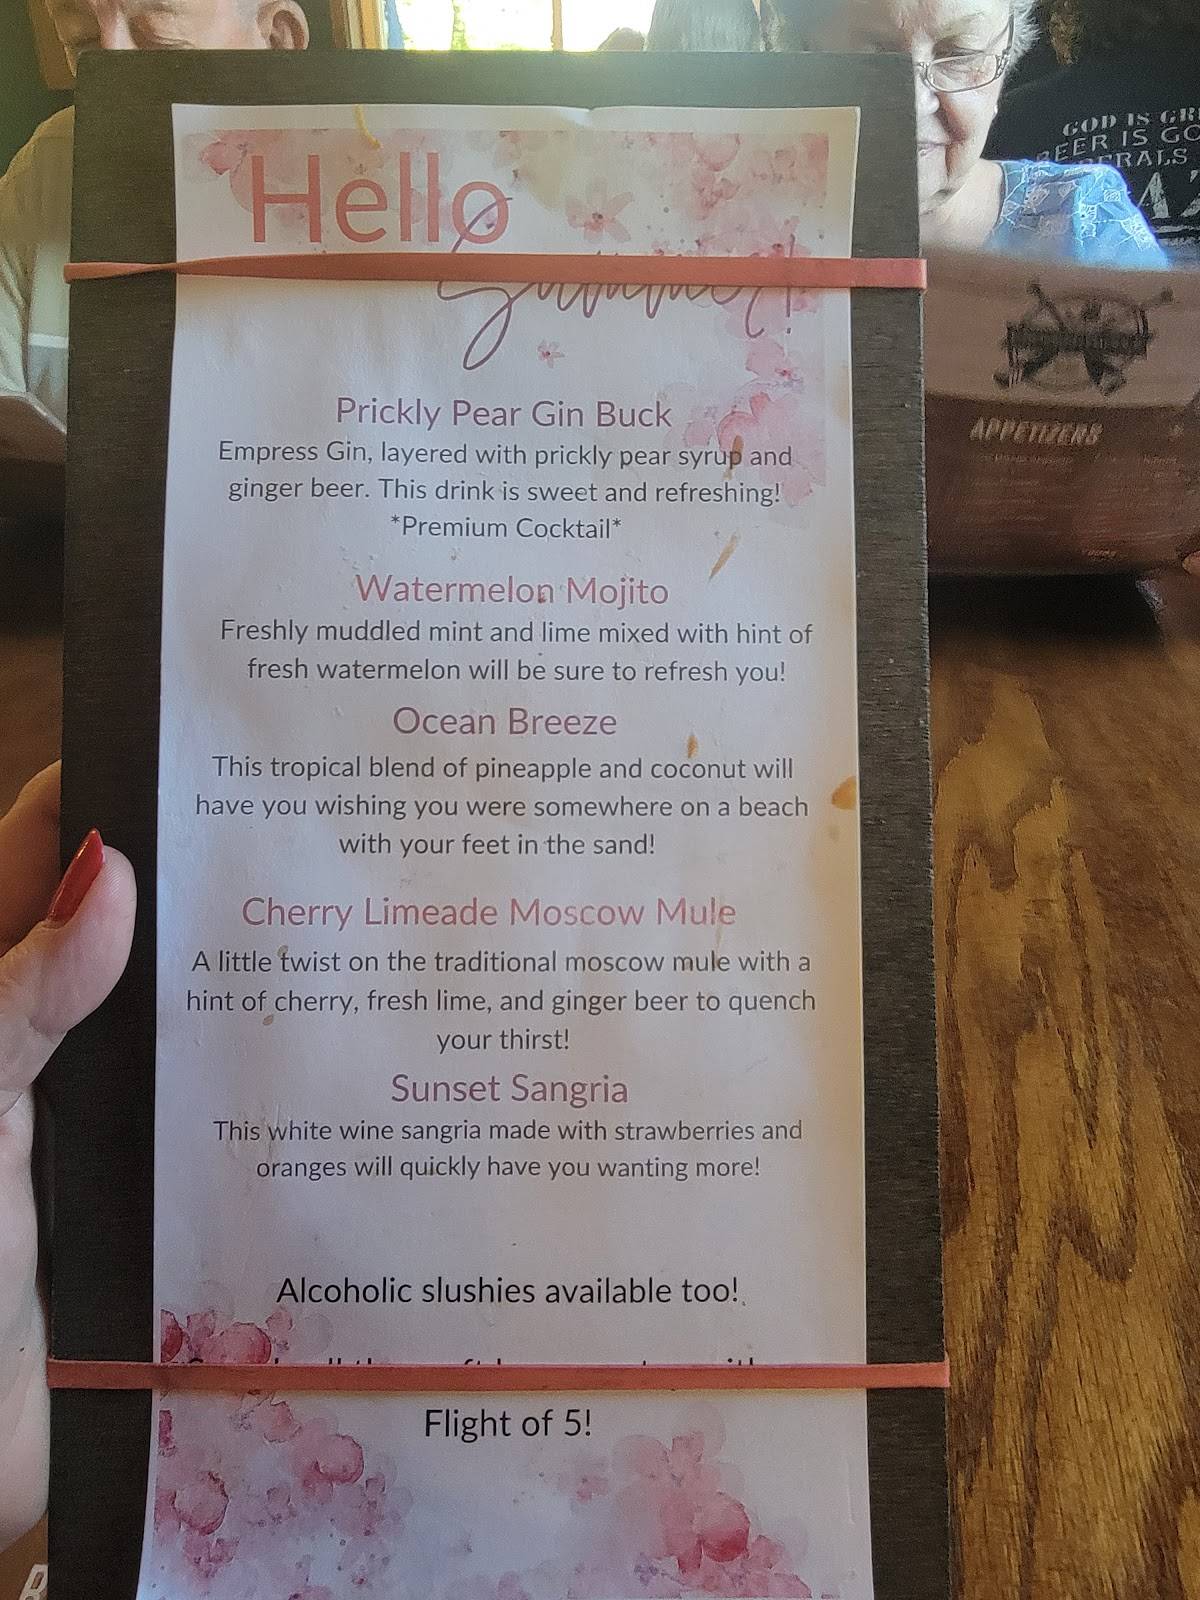 Hello
Summer!
Prickly Pear Gin Buck
Empress Gin, layered with prickly pear syrup and
ginger beer. This drink is sweet and refreshing!
*Premium Cocktail*
Watermelon Mojito
Freshly muddled mint and lime mixed with hint of
fresh watermelon will be sure to refresh you!
Ocean Breeze
This tropical blend of pineapple and coconut will
have you wishing you were somewhere on a beach
with your feet in the sand!
Cherry Limeade Moscow Mule
A little twist on the traditional moscow mule with a
hint of cherry, fresh lime, and ginger beer to quench
your thirst!
Sunset Sangria
This white wine sangria made with strawberries and
oranges will quickly have you wanting more!
Alcoholic slushies available too!
Flight of 5!
GOD IS
BEER IS
APPETIZERS